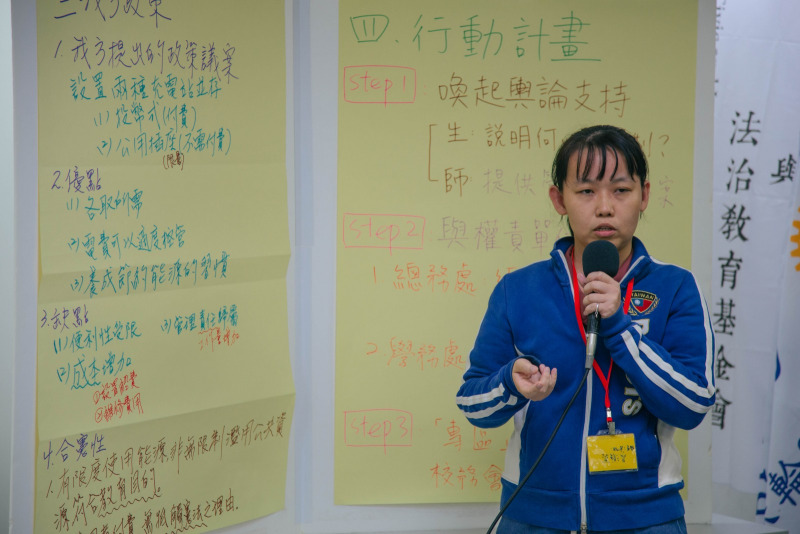 三、我方政策
1. 我方提出的政策議案
設置兩種充電站並存
(1) 投幣式(付費)
(2) 公用插座(不需付費)
(限量)
2. 優點
(1) 各取所需
(2) 電費可以適度控管
(3) 養成節約能源的習慣
3. 缺點
(1) 便利性受限
(2) 成本增加
①設置經費
②維修費用
(3) 管理責任歸屬
工作量增加
4. 合憲性
1. 有限度使用能源,非無限制濫用公共資
源符合教育目的
四.行動計畫
step 1
喚起輿論支持
生:說明何
?
師:提供
案
step 2
與權責單
1. 總務處
2. 學務處
step 3
「專區
校務會
與
法治教育基金會
輪
TAIWAN